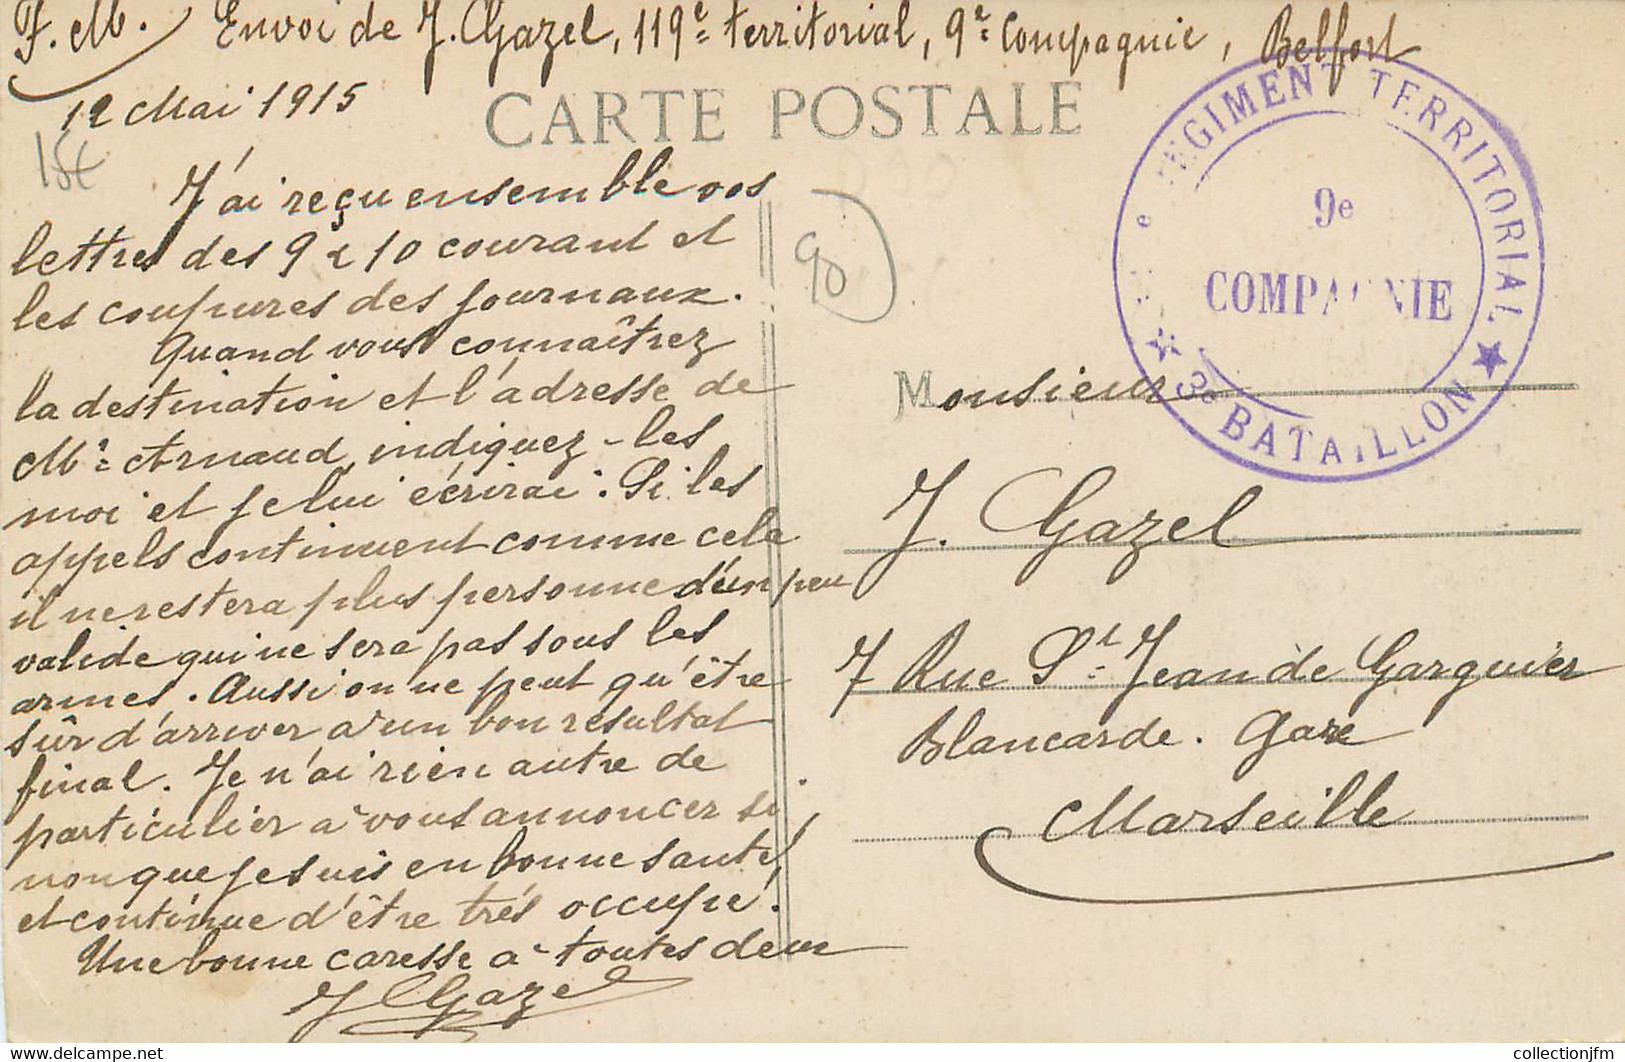 F. M. Envoi de J. Gazel, 119e territorial, 9e Compagnie, Belfort
12 Mai 1915
CARTE POSTALE
15€
90
J'ai reçu ensemble vos
lettres des 9 & 10 courant et
les coupures des journaux.
Quand vous connaîtrez
la destination et l'adresse de
Mr Arnaud indiquez-les
moi et je lui écrirai. Si les
appels continuent comme cela
il ne restera plus personne d'un peu
valide qui ne sera pas sous les
armes. Aussi on ne peut qu'être
sûr d'arriver à un bon résultat
final. Je n'ai rien autre de
particulier à vous annoncer si,
non que je suis en bonne santé,
et continue d'être très occupé.
Une bonne caresse à toutes deux
J Gazel
e REGIMENT TERRITORIAL
9e
COMPAGNIE
★ 3e BATAILLON ★
Monsieur
J. Gazel
7 Rue St Jean de Garguier
Blancarde. Gare
Marseille
collectionjfm